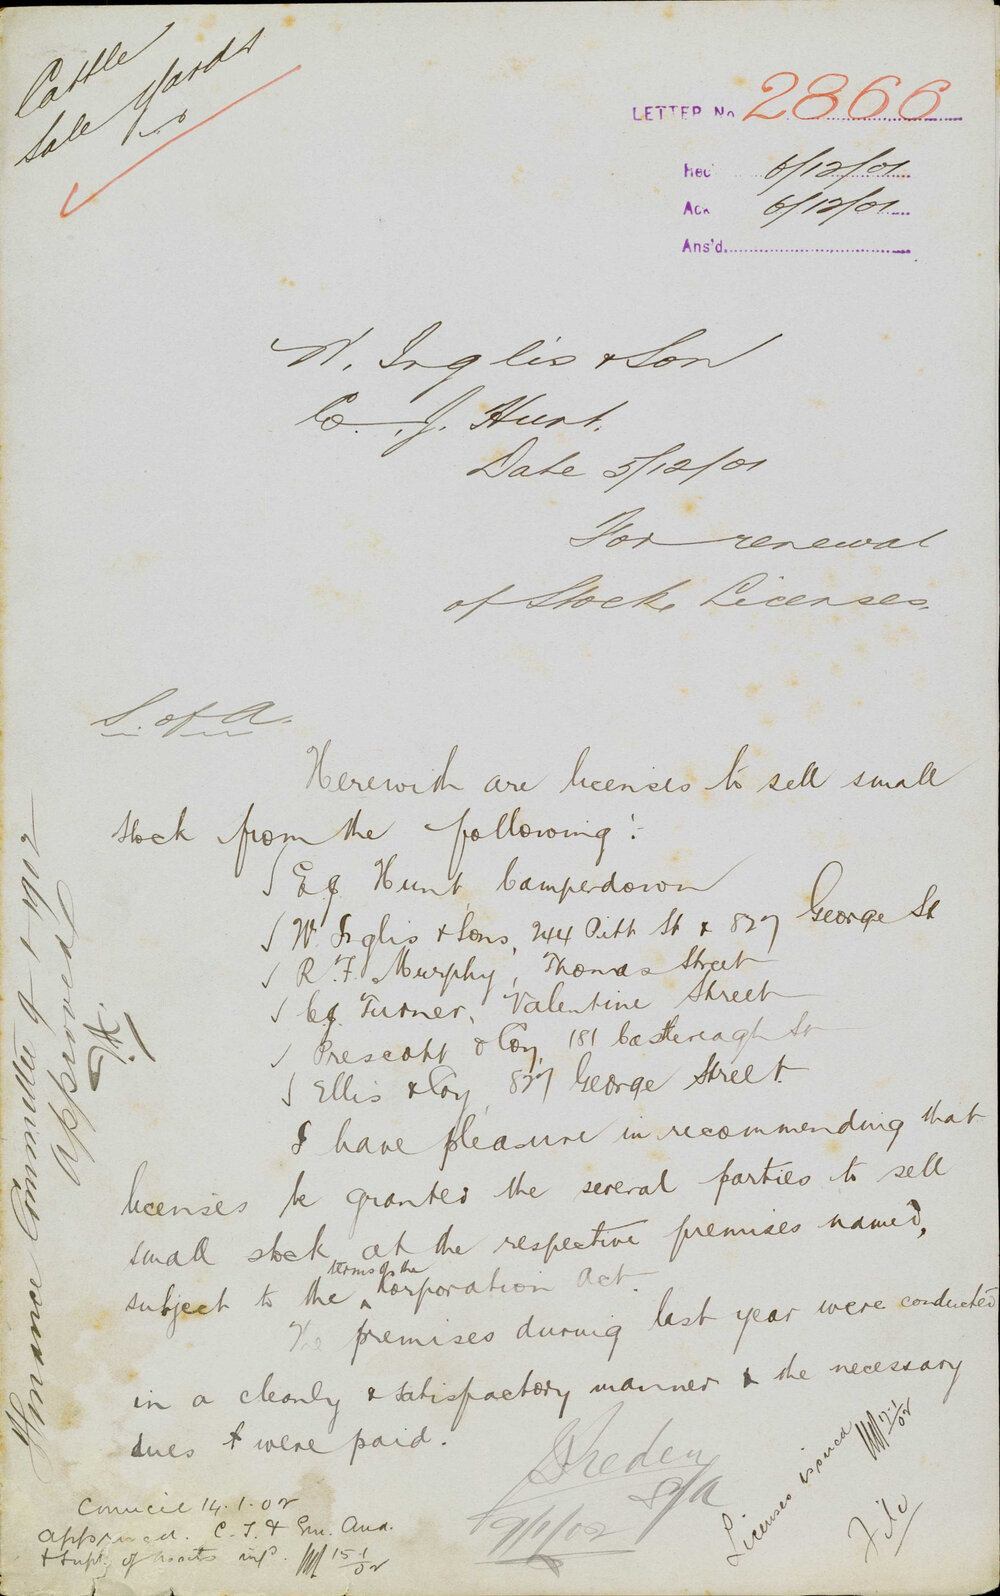 Cattle
Sale Yards
LETTER No 2866
Rec 6/12/01
Ack 6/12/01
Ans'd
W. Inglis & Son
Co. J. Hunt.
Date 5/12/01
For renewal
of Stock Licenses.
S. of A.
Herewith are licenses to sell small
stock from the following :-
E J Hunt, Camperdown
W. Inglis & Sons, 244 Pitt St & 827 George St
R. F. Murphy, Thomas Street
C J. Turner, Valentine Street
Prescott & Coy, 181 Castlereagh St
Ellis & Coy 827 George Street
I have pleasure in recommending that
licenses be granted the several parties to sell
small stock at the respective premises named,
subject to the terms of the Corporation Act.
The premises during last year were conducted
in a cleanly & satisfactory manner & the necessary
dues were paid.
S/A
9/1/02
Finance Committee 9-1-1902
Approved
Council 14.1.02
approved. C.T. & Gen. Aud.
& Supt. of Markets inf.
15-1/02
Licenses issued
17-1/02
File